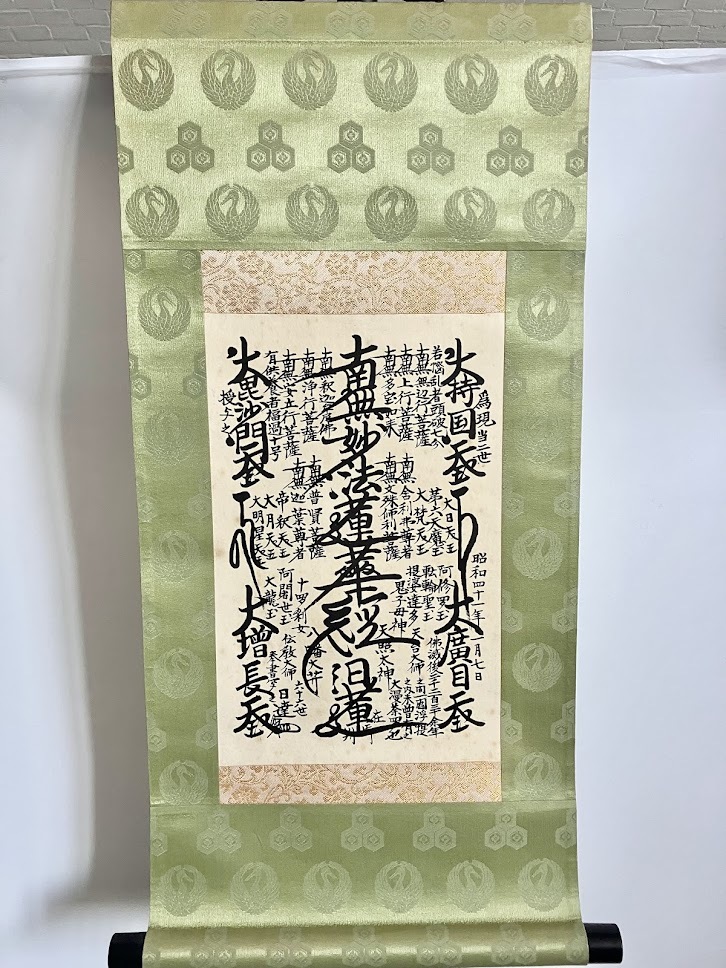 為現当二世
昭和四十一年
月七日
大持国天王
大廣目天王
若悩乱者頭破七分
南無無辺行菩薩
南無上行菩薩
南無多宝如来
大日天王
第六天魔王
大梵天王
南無舎利弗尊者
南無文殊師利菩薩
阿修羅王
転輪聖王
提婆達多
鬼子母神
天台大師
天照太神
佛滅後二千二百三十余年
之間一閻浮提
之内未曽有之
大漫荼羅也
南無妙法蓮華経
日蓮
在
南無釈迦牟尼佛
南無浄行菩薩
南無安立行菩薩
有供養者福過十号
南無普賢菩薩
南無迦葉尊者
帝釈天王
大月天王
大明星天王
十羅刹女
阿闍世王
大龍王
八幡大菩薩
伝教大師
六十六世
日達
奉書写之
大毘沙門天王
授与之
大増長天王